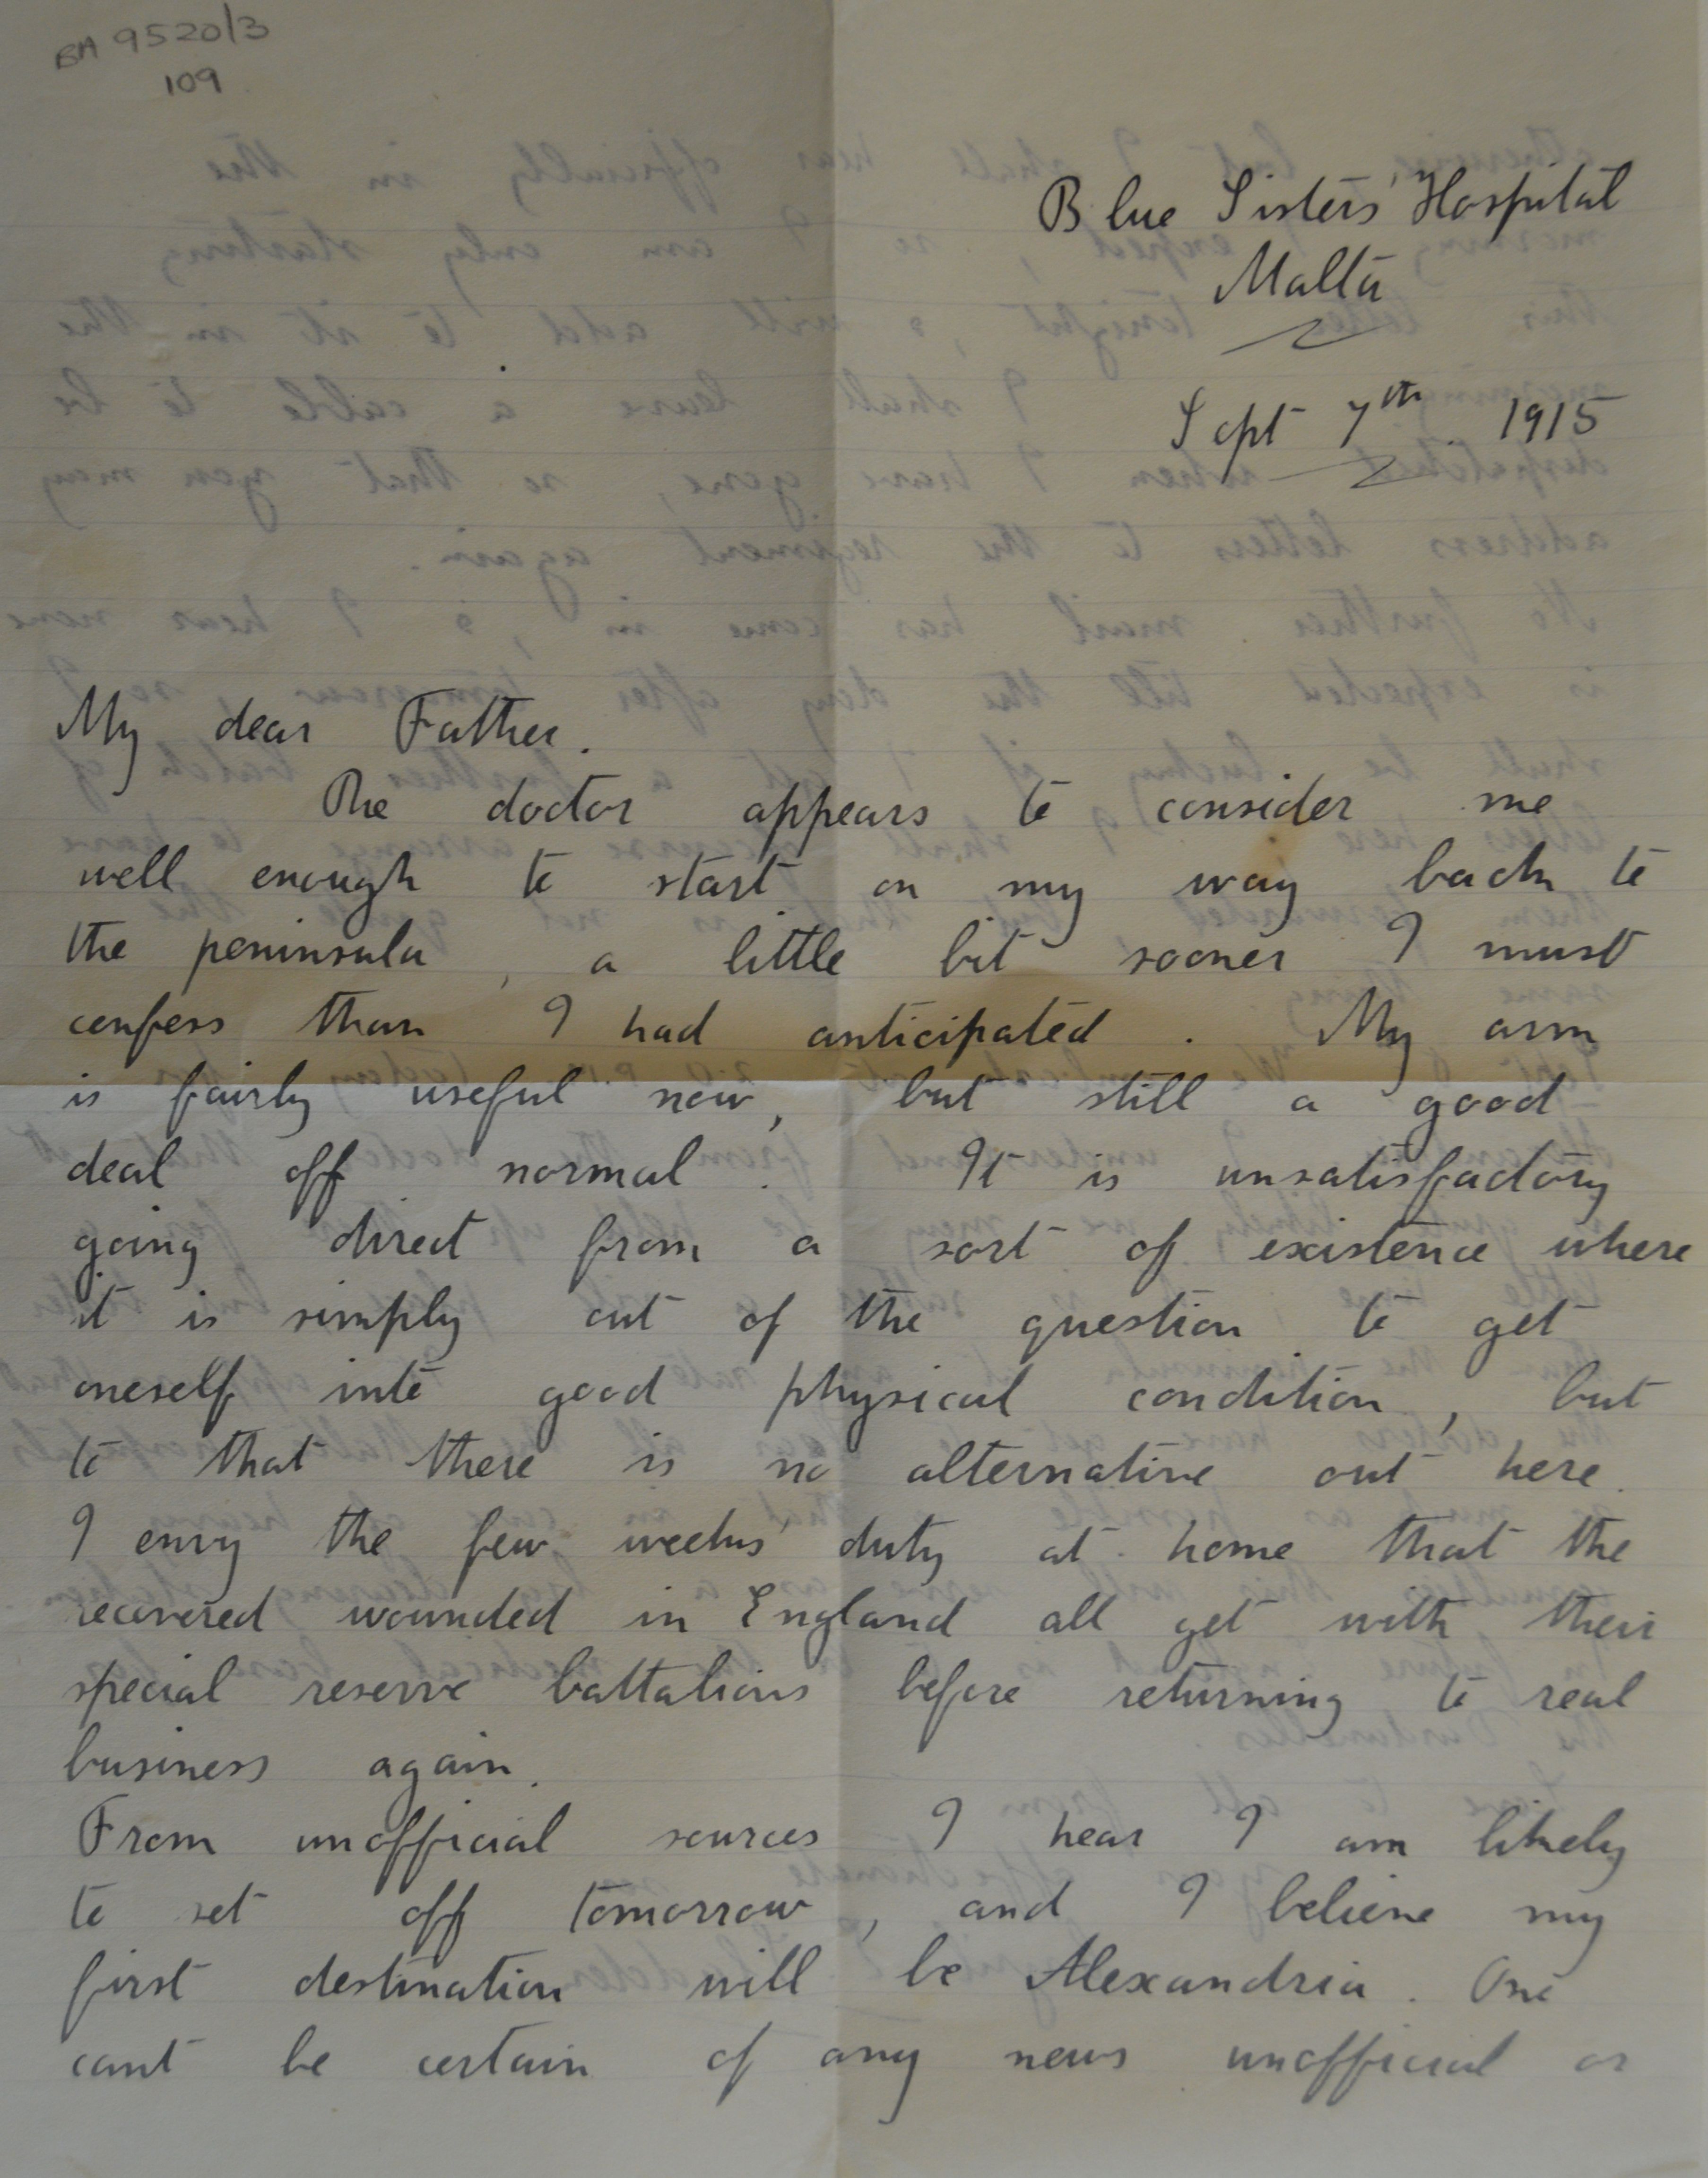 BA 9520/3
109
Blue Sisters' Hospital
Malta
Sept 7th. 1915
My dear Father.
The doctor appears to consider me
well enough to start on my way back to
the peninsula, a little bit sooner I must
confess than I had anticipated. My arm
is fairly useful now, but still a good
deal off normal. It is unsatisfactory
going direct from a sort of existence where
it is simply out of the question to get
oneself into good physical condition, but
to that there is no alternative out here.
I envy the few weeks' duty at home that the
recovered wounded in England all get with their
special reserve battalions before returning to real
business again.
From unofficial sources I hear I am likely
to set off tomorrow, and I believe my
first destination will be Alexandria. One
cant be certain of any news unofficial or